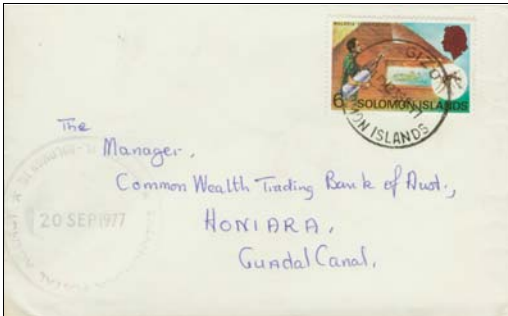 6c SOLOMON ISLANDS
GIZO
ISLANDS
The
Manager,
Common Wealth Trading Bank of Aust.,
HONIARA,
GuadalCanal,
20 SEP 1977